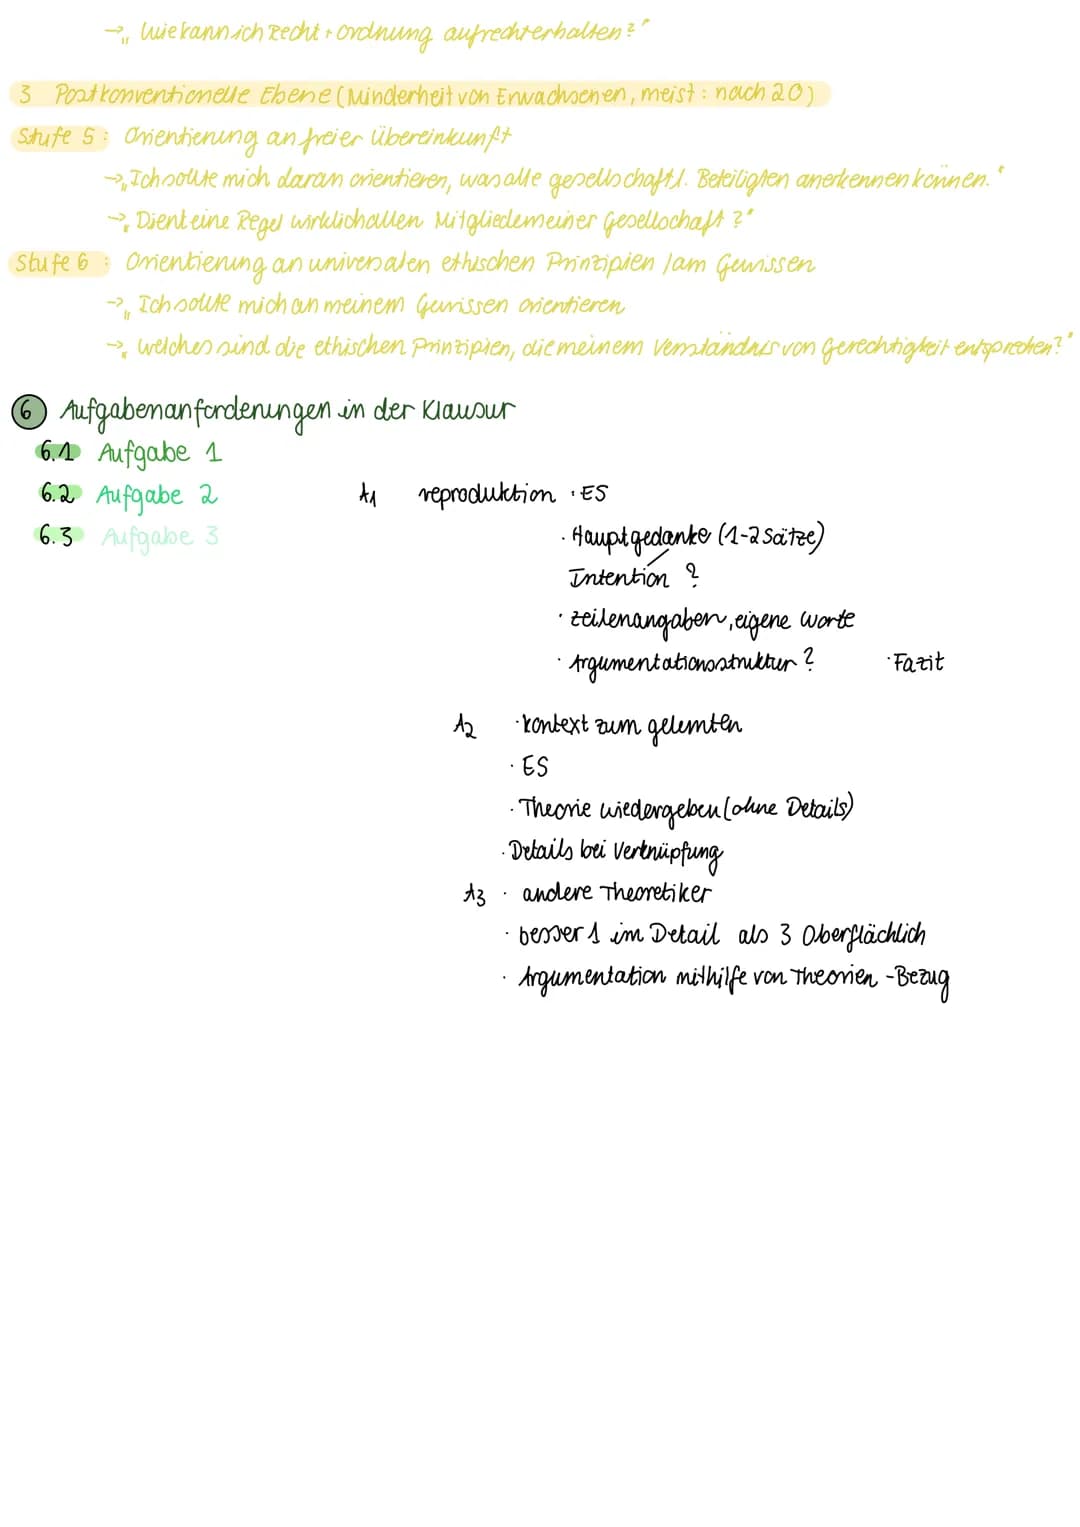 → „Wie kann ich Recht + Ordnung aufrechterhalten?"
3 Postkonventionelle Ebene (Minderheit von Erwachsenen, meist: nach 20)
Stufe 5: Orientierung an freier Übereinkunft
→ „Ich sollte mich daran orientieren, was alle gesellschaftl. Beteiligten anerkennen können."
→ „Dient eine Regel wirklich allen Mitgliedern einer Gesellschaft?"
Stufe 6: Orientierung an universalen ethischen Prinzipien / am Gewissen
→ „Ich sollte mich an meinem Gewissen orientieren
→ „Welches sind die ethischen Prinzipien, die meinem Verständnis von Gerechtigkeit entsprechen?"
6 Aufgabenanforderungen in der Klausur
6.1 Aufgabe 1
6.2 Aufgabe 2
6.3 Aufgabe 3
A1 reproduktion · ES
· Hauptgedanke (1-2 Sätze)
Intention ?
· Zeilenangaben, eigene Worte
· Argumentationsstruktur ? · Fazit
A2 · Kontext zum gelernten
· ES
· Theorie wiedergeben (ohne Details)
· Details bei Verknüpfung
A3 · andere Theoretiker
· besser 1 im Detail als 3 Oberflächlich
· Argumentation mithilfe von Theorien - Bezug